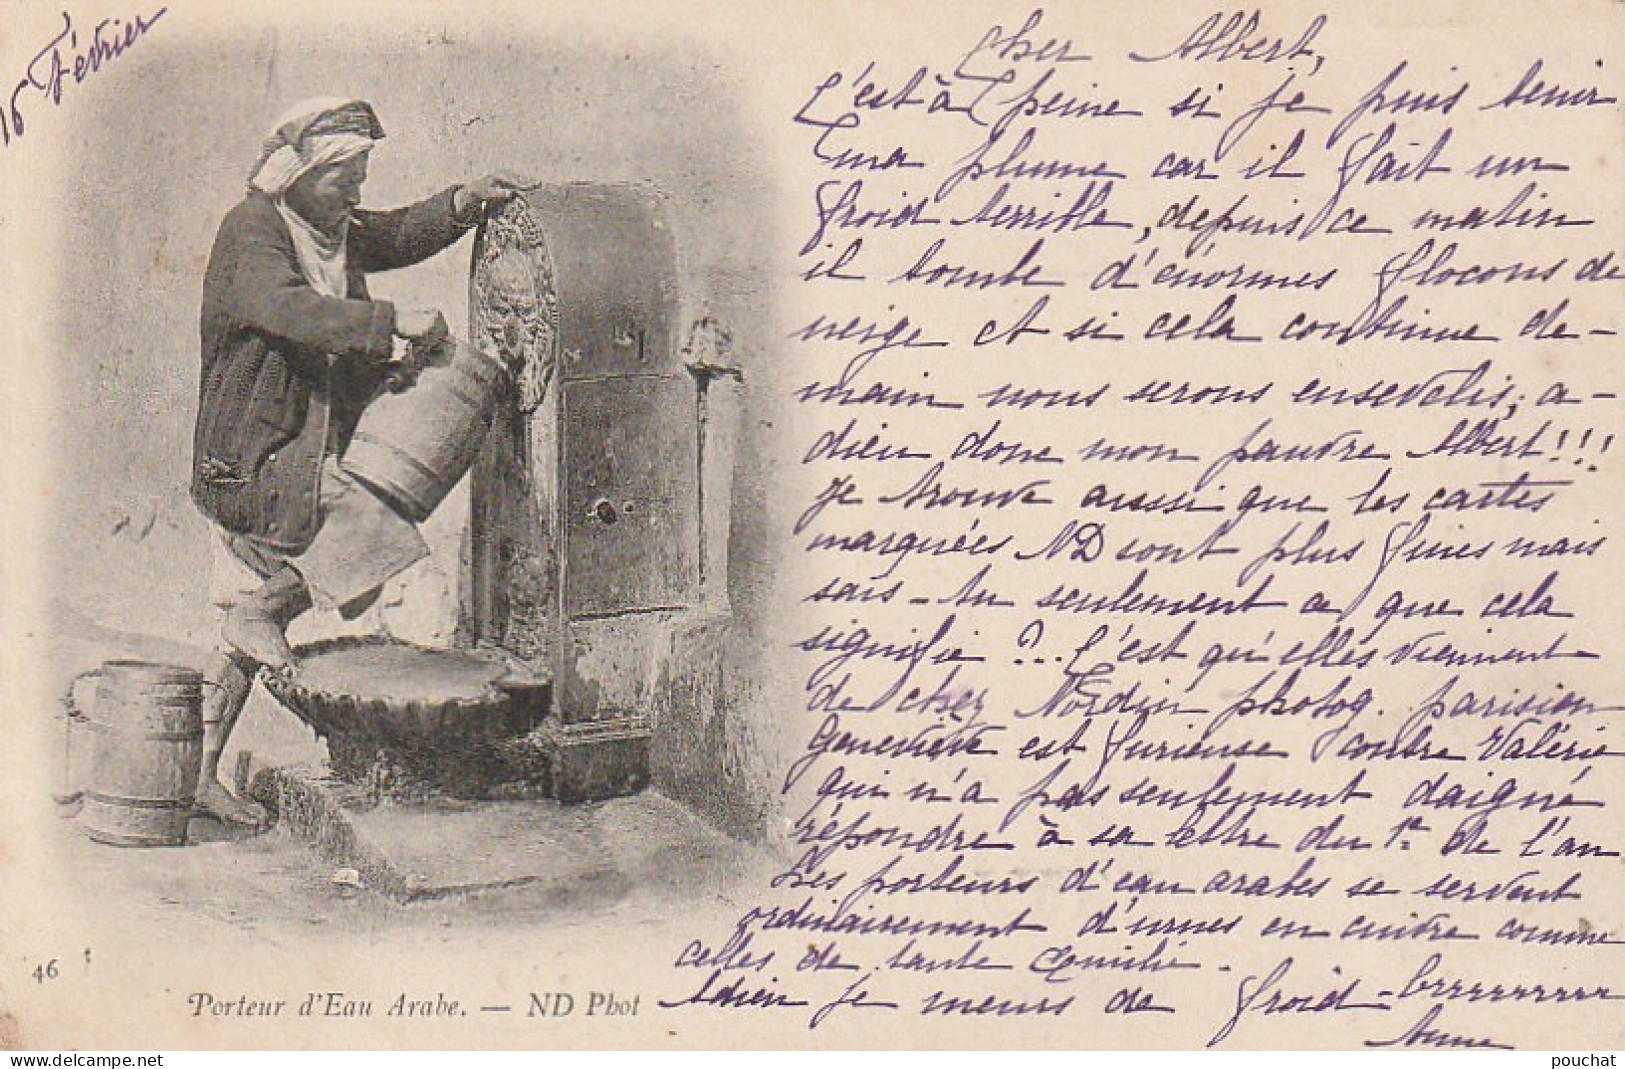 16 Février
Cher Albert,
C'est à peine si je puis tenir
ma plume car il fait un
froid terrible, depuis ce matin
il tombe d'énormes flocons de
neige et si cela continue de-
main nous serons ensevelis; a-
dieu donc mon pauvre Albert!!!
Je trouve aussi que les cartes
marquées ND sont plus fines mais
sais-tu seulement ce que cela
signifie ?.. C'est qu'elles viennent
de chez Nordin photog. parisien
Geneviève est furieuse contre Valérie
qui n'a pas seulement daigné
répondre à sa lettre du 1er de l'an
Les porteurs d'eau arabes se servent
ordinairement d'urnes en cuivre comme
celles de tante Emilie.
Adieu je meurs de froid - brrrrrrrrrr
Anne
46
Porteur d'Eau Arabe. — ND Phot
pouchat